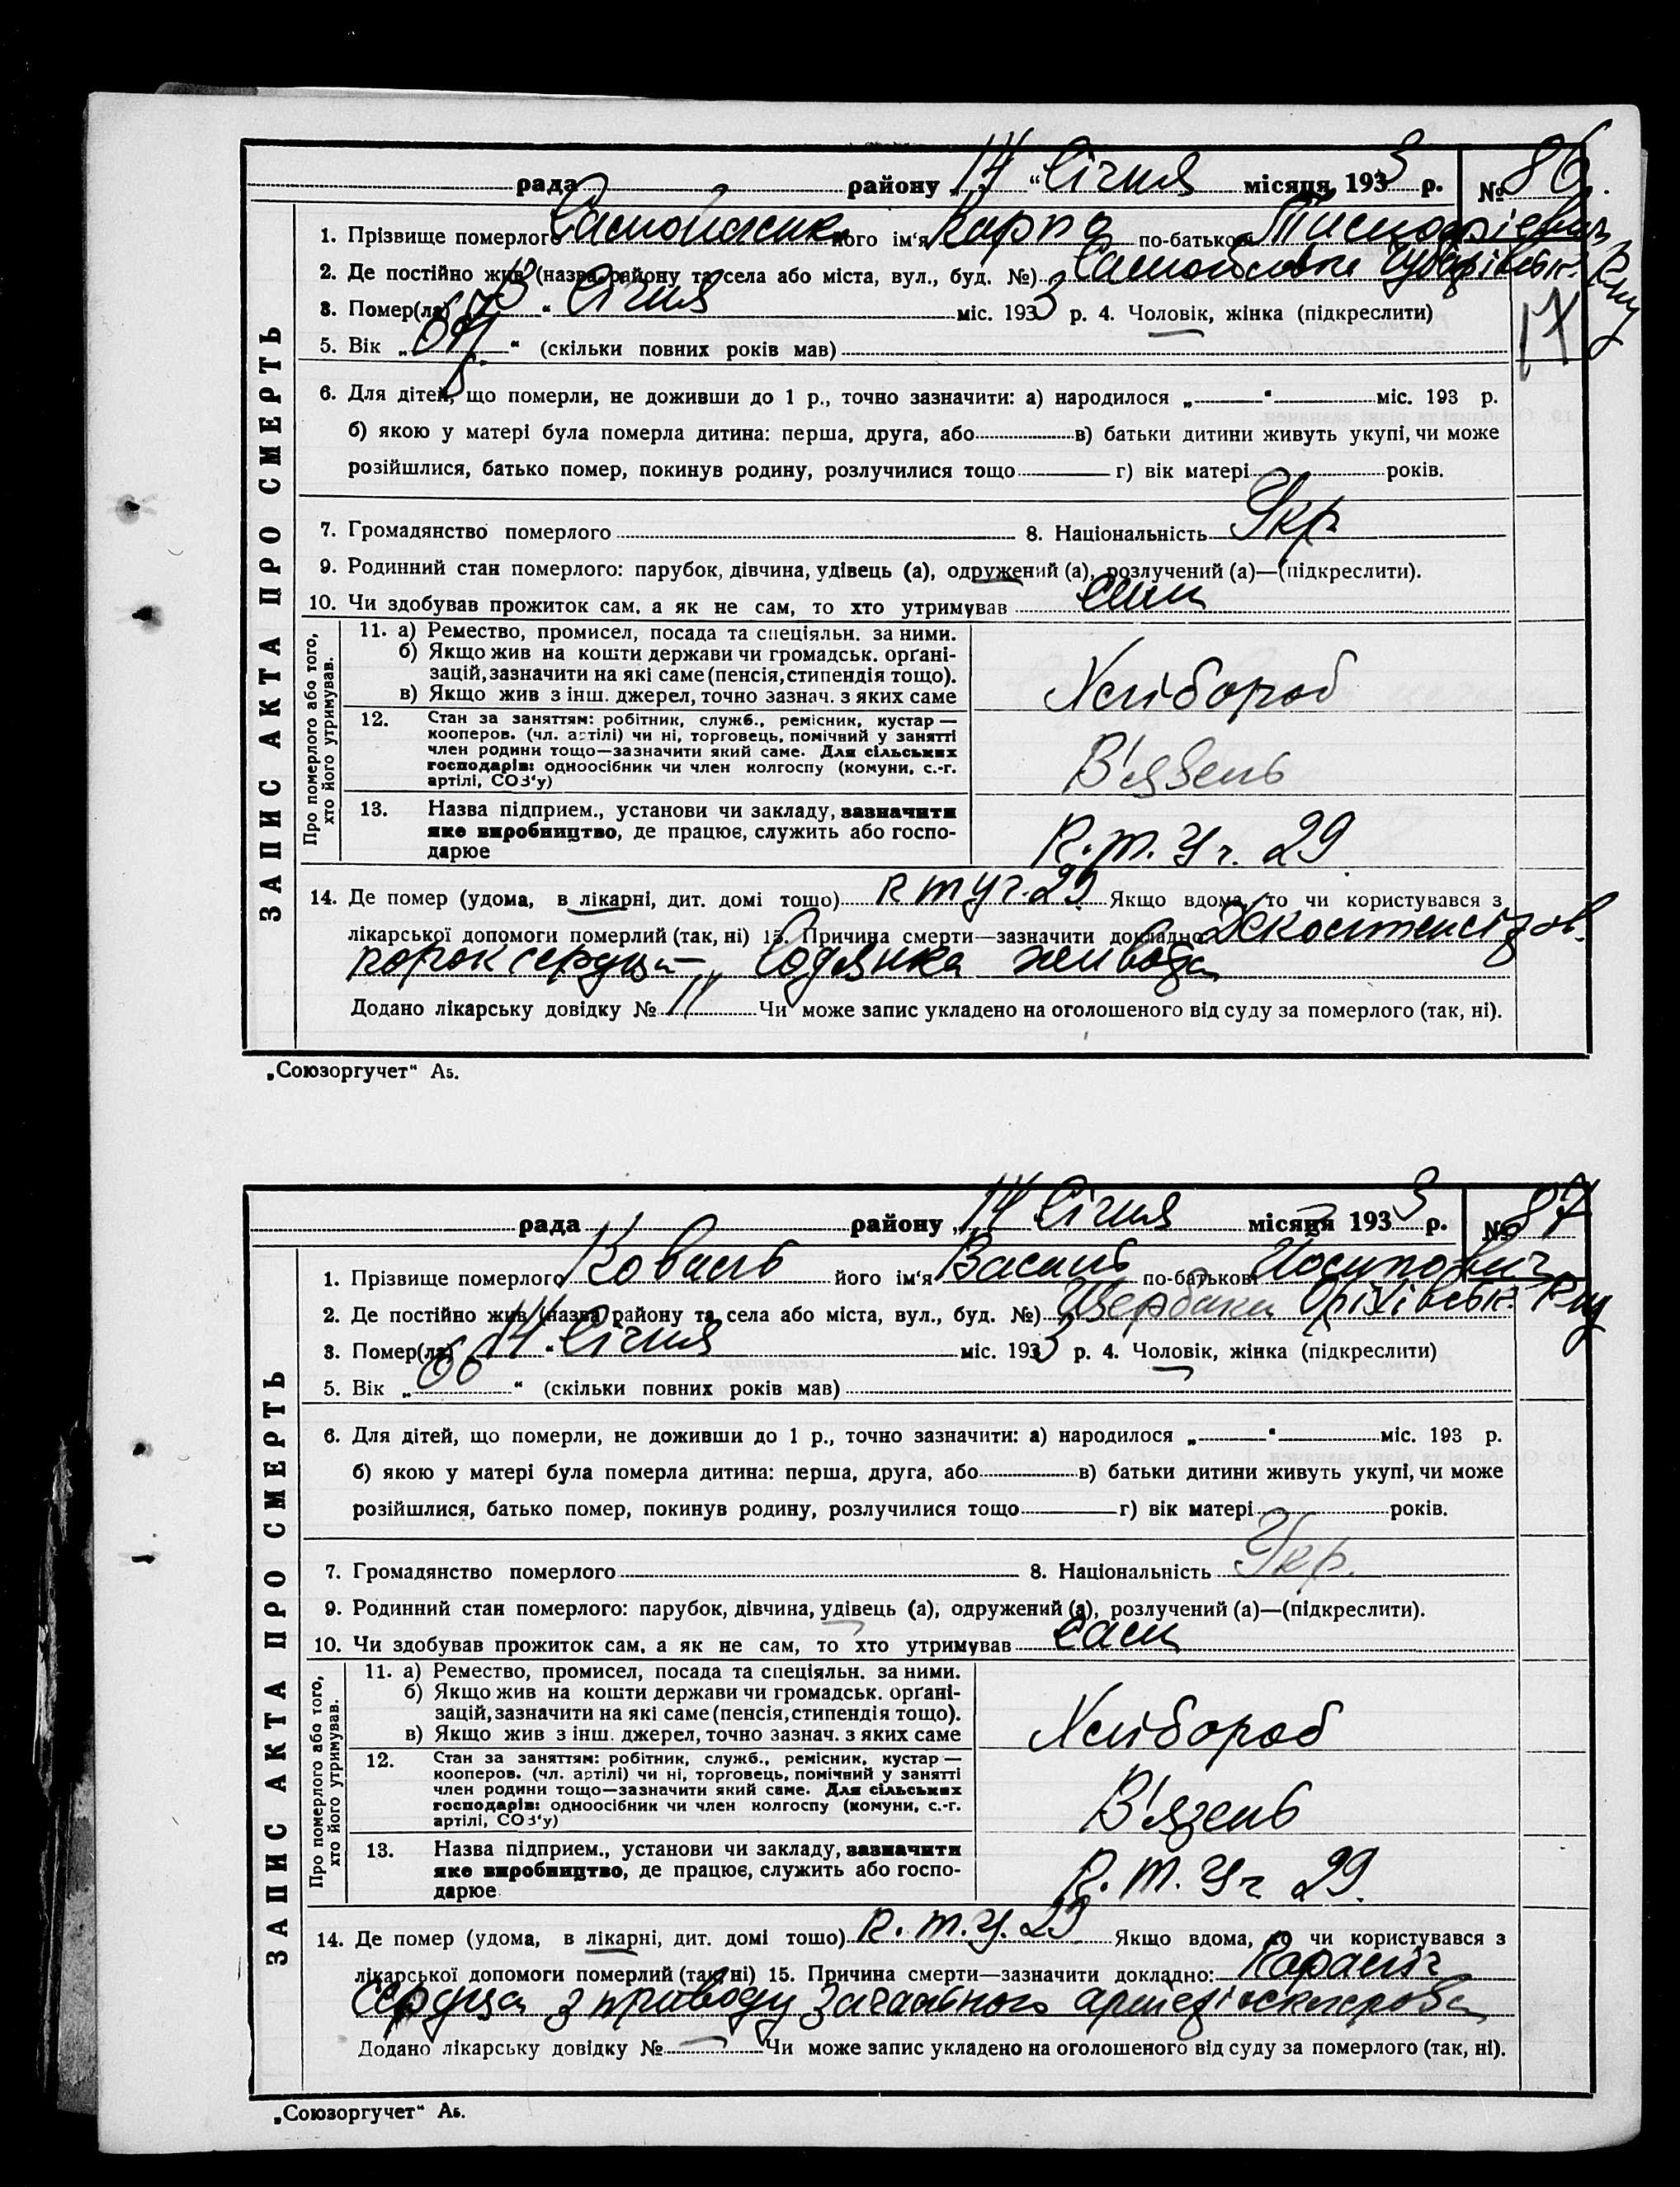 рада района „14“ Січня місяця 1933 р. № 86.
1. Прізвище померлого його ім'я Карпо по-батькові
2. Де постійно жив (назва району та села або міста, вул., буд. №)
3. Помер(ла) „13“ Січня міс. 1933 р. 4. Чоловік, жінка (підкреслити)
17
5. Вік „ “ (скільки повних років мав)
6. Для дітей, що померли, не доживши до 1 р., точно зазначити: а) народилося „ “ міс. 193 р.
б) якою у матері була померла дитина: перша, друга, або в) батьки дитини живуть укупі, чи може
розійшлися, батько помер, покинув родину, розлучилися тощо г) вік матері років.
7. Громадянство померлого 8. Національність Укр
9. Родинний стан померлого: парубок, дівчина, удівець (а), одружений (а), розлучений (а)—(підкреслити).
10. Чи здобував прожиток сам, а як не сам, то хто утримував сам
11. а) Ремество, промисел, посада та спеціяльн. за ними.
б) Якщо жив на кошти держави чи громадськ. орґані-
зацій, зазначити на які саме (пенсія, стипендія тощо).
в) Якщо жив з інш. джерел, точно зазнач. з яких саме
Хлібороб
12. Стан за заняттям: робітник, служб., ремісник, кустар —
кооперов. (чл. артілі) чи ні, торговець, помічний у занятті
член родини тощо—зазначити який саме. Для сільських
господарів: одноосібник чи член колгоспу (комуни, с.-г.
артілі, СОЗ'у)
В'язень
13. Назва підприєм., установи чи закладу, зазначити
яке виробництво, де працює, служить або госпо-
дарюе
К.т. Уч. 29
Про померлого або того,
хто його утримував.
14. Де помер (удома, в лікарні, дит. домі тошо) к т уч. 29 Якщо вдома, то чи користувався з
лікарської допомоги померлий (так, ні) 15. Причина смерти—зазначити докладно: Декомпенсізов.
порок сердця Водянка живота
Додано лікарську довідку № 11 Чи може запис укладено на оголошеного від суду за померлого (так, ні).
ЗАПИС АКТА ПРО СМЕРТЬ
„Союзоргучет“ А5.
рада району „14 Січня місяця 1933 р. № 87
1. Прізвище померлого Коваль його ім'я Василь по-батькові Йосипович
2. Де постійно жив (назва району та села або міста, вул., буд. №) Щербаки Оріхівськ. р-ну
3. Помер(ла) „14“ Січня міс. 1933 р. 4. Чоловік, жінка (підкреслити)
5. Вік „66“ (скільки повних років мав)
6. Для дітей, що померли, не доживши до 1 р., точно зазначити: а) народилося „ “ міс. 193 р.
б) якою у матері була померла дитина: перша, друга, або в) батьки дитини живуть укупі, чи може
розійшлися, батько помер, покинув родину, розлучилися тощо г) вік матері років.
7. Громадянство померлого 8. Національність Укр.
9. Родинний стан померлого: парубок, дівчина, удівець (а), одружений (а), розлучений (а)—(підкреслити).
10. Чи здобував прожиток сам, а як не сам, то хто утримував сам
11. а) Ремество, промисел, посада та спеціяльн. за ними.
б) Якщо жив на кошти держави чи громадськ. орґані-
зацій, зазначити на які саме (пенсія, стипендія тощо).
в) Якщо жив з інш. джерел, точно зазнач. з яких саме
Хлібороб
12. Стан за заняттям: робітник, служб., ремісник, кустар —
кооперов. (чл. артілі) чи ні, торговець, помічний у занятті
член родини тощо—зазначити який саме. Для сільських
господарів: одноосібник чи член колгоспу (комуни, с.-г.
артілі, СОЗ'у)
В'язень
13. Назва підприєм., установи чи закладу, зазначити
яке виробництво, де працює, служить або госпо-
дарюе
К.т. Уч 29.
Про померлого або того,
хто його утримував.
14. Де помер (удома, в лікарні, дит. домі тошо) к.т.у. 29 Якщо вдома, то чи користувався з
лікарської допомоги померлий (так, ні) 15. Причина смерти—зазначити докладно: Параліч
сердця з приводу загального артеріосклероза
Додано лікарську довідку № — Чи може запис укладено на оголошеного від суду за померлого (так, ні).
ЗАПИС АКТА ПРО СМЕРТЬ
„Союзоргучет“ А5.